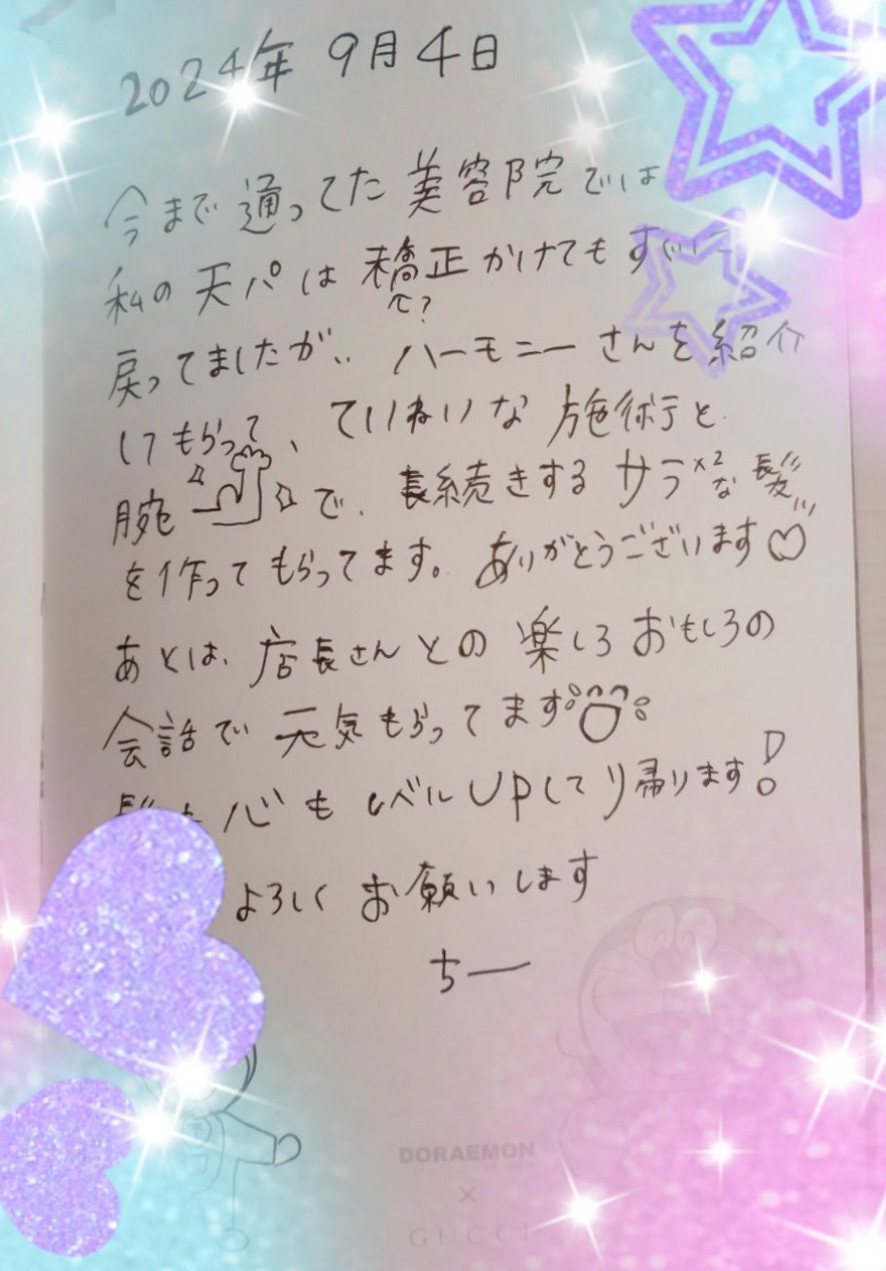 2024年 9月4日
今まで通ってた美容院では
私の天パは矯正かけてもすぐに
て?
戻ってましたが、ハーモニーさんを紹介
してもらって、ていねいな施術と
腕で、長続きするサラ×2な髪
を作ってもらってます。ありがとうございます♡
あとは、店長さんとの楽しろおもしろの
会話で元気もらってます
心もレベルUPしてり帰ります!
よろしくお願いします
ちー
DORAEMON
×
GUCCI